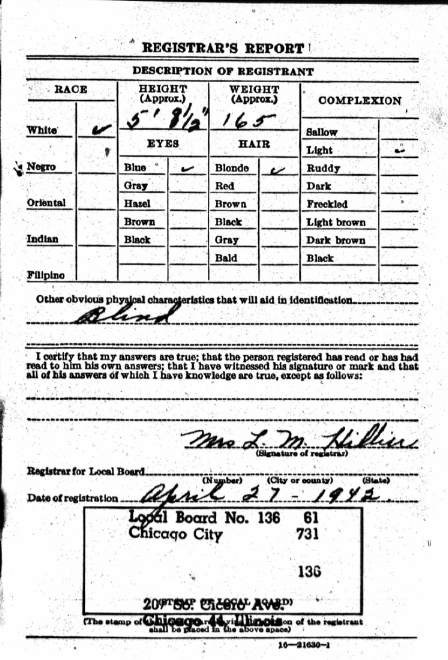 REGISTRAR'S REPORT
DESCRIPTION OF REGISTRANT
RACE
HEIGHT (Approx.)
WEIGHT (Approx.)
COMPLEXION
5' 8½"
165
White ✓
EYES
HAIR
Sallow
Light ✓
Negro
Blue ✓
Blonde ✓
Ruddy
Gray
Red
Dark
Oriental
Hazel
Brown
Freckled
Brown
Black
Light brown
Indian
Black
Gray
Dark brown
Bald
Black
Filipino
Other obvious physical characteristics that will aid in identification
Blind
I certify that my answers are true; that the person registered has read or has had
read to him his own answers; that I have witnessed his signature or mark and that
all of his answers of which I have knowledge are true, except as follows:
Mrs L. M. Hillier
(Signature of registrar)
Registrar for Local Board
(Number) (City or county) (State)
Date of registration April 27 - 1942
Local Board No. 136 61
Chicago City 731
136
207 So. Cicero Ave.
(STAMP OF LOCAL BOARD)
Chicago 44, Illinois
(The stamp of of the registrant
shall be placed in the above space)
16—21630-1